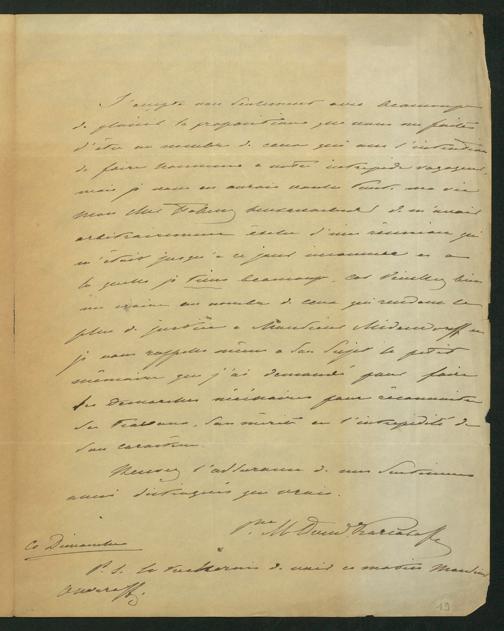 J'accepte non seulement avec beaucoup
de plaisir la proposition que vous me faites
d'être au nombre de ceux qui ont l'intention
de faire honneur à notre intrépide voyageur,
mais je vous en aurais voulu toute ma vie
mon cher de m'avoir
arbitrairement exclu d'une réunion qui
m'était jusqu'à ce jour inconnue et à
la quelle je tiens beaucoup. Car Veuillez bien
me au nombre de ceux qui rendent le
plus de justice à Monsieur Middendorff et
je vous rappelle même à son sujet le petit
mémoire que j'ai demandé pour faire
les démarches nécessaires pour reconnaître
ses travaux, son mérite et l'intrépidité de
son caractère.
Recevez l'assurance de mes sentiments
aussi distingués que vrais.
Pce M.
Ce Dimanche
P. S. de voir ce matin Monsieur
19